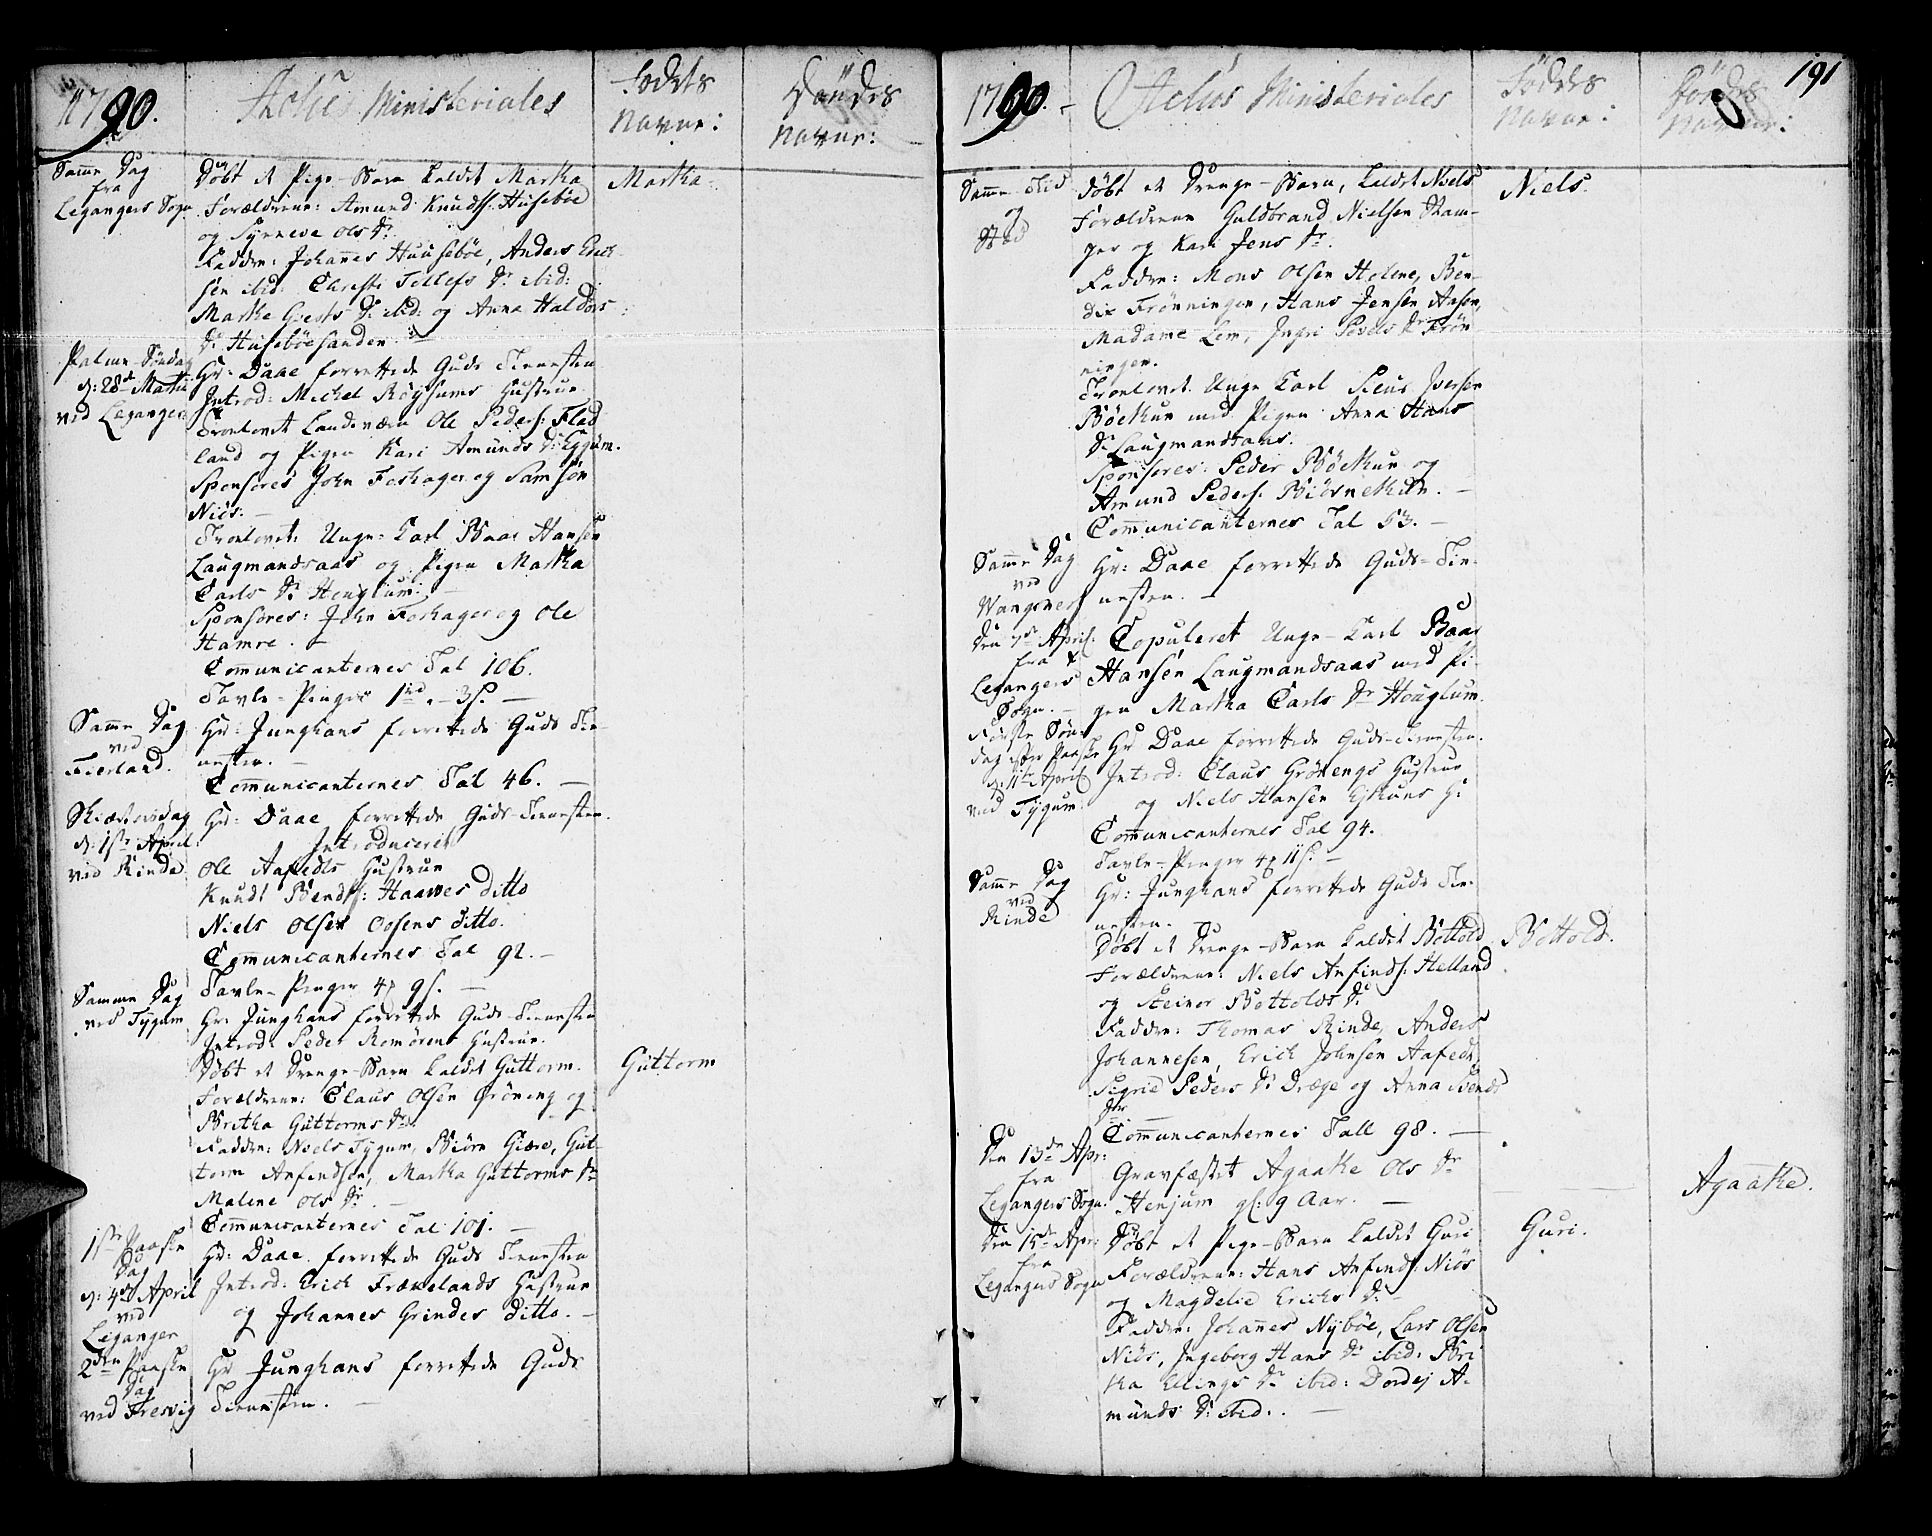 1790.
Actus Ministeriales
Fødtes
Navne:
Døødes
Navne:
Samme Dag
fra
Legangers Sogn
Døbt et Pige-Barn kaldet Martha
Forældrene: Amund Knuds: Husebøe
og Synneve Ols Dr
Faddre: Johannes Huusebøe, Anders Erich-
sen ibid: Christi Tollefs Dr ibid:
Marthe Giests Dr ibid: og Anna Haldors
Dr Husebøesanden.
Martha.
Palme-Søndag
d: 28de Martii
ved Leganger
Hr: Daae forrettede Guds Tienesten
Introd: Michel Røysums Hustrue
Trolovet Landeværn Ole Peders: Flad
land og Pigen Kari Amunds Dr Eggum.
Sponsores John Foshager og Samson
Niøs.
Trolovet: Unge-Karl Baar Hansen
Laugmandsaas og Pigen Martha
Carls Dr Henjum.
Sponsores: John Foshager og Ole
Hamre.
Communicanternes Tal 106.
Tavle-Penger 1rd - 3s.
Samme Dag
ved
Fierland.
Hr: Junghans forrettede Guds Tie-
nesten.
Communicanternes Tal 46.
Skiærtorsdag
d: 1ste April
ved Rinde
Hr: Daae forrettede Guds-Tienesten.
Introduceret
Ole Aafedts Hustrue
Knudt Bendts: Haaves ditto
Niels Olsen Oosens ditto.
Communicanternes Tal 92.
Tavle-Penger 4 9s.
Samme Dag
ved Tygum
Hr: Junghans forrettede Guds-Tienesten
Introd: Peder Romørens Hustrue.
Døbt et Drenge-Barn kaldet Guttorm.
Forældrene: Claus Olsen Grøneng og
Britha Guttorms Dr
Faddre: Niels Tygum, Biørn Giære, Gut-
torm Anfindsen, Martha Guttorms Dr
Malene Ols Dr
Communicanternes Tal 101.
Guttorm
1ste Paaske
Dag
d: 4de April
ved
Leganger
Hr: Daae forrettede Guds Tienesten
Introd: Erich Frænelands Hustrue
og Johannes Grindes ditto.
2den Paaske
Dag
ved Fresvig
Hr Junghans forrettede Guds
Tienesten.
1790.
Actus Ministeriales
Fødtes
Navne:
Dødes
Navne:
191
Samme Tid
og
Stæd
Døbt et Drenge-Barn, kaldet Niels
Forældrene Guldbrand Nielsen Stam-
ger og Kari Jens Dr.
Faddre: Mons Olsen Helene, Ben-
dix Frønningen, Hans Jensen Aasen,
Madame Lem, Ingri Povels Dr Frøn
ningen.
Niels.
Trolovet Unge Karl Siur Iversen
Bøethun med Pigen Anna Hans
Dr Laugmandsaas.
Sponsores: Peder Bøethun og
Amund Peders: Biørnethun.
Communicanternes Tal 53.
Samme Dag
ved
Wangsnes
Hr: Daae forrettede Guds-Tie-
nesten.
Den 7de April
fra
Legangers
Sogn.
Copuleret Unge-Karl Baar
Hansen Laugmandsaas med Pi-
gen Martha Carls Dr Houglum.
Første Søn
dag efter Paaske
d: 11te April
ved Tygum
Hr Daae forrettede Guds-Tienesten.
Introd: Claus Grønengs Hustrue
og Niels Hansen Eithuns H:
Communicanternes Tal 94.
Tavle-Penger 4 11s.
Samme Dag
ved
Rinde
Hr: Junghans forrettede Guds Tie-
nesten.
Døbt et Drenge-Barn kaldet Bottold
Forældrene: Niels Anfinds: Helland
og Steinor Bottolds Dr
Faddre: Thomas Rinde, Anders
Johannesen, Erich Johnsen Aafedt,
Sigrid Peders Dr Dræge og Anna Svends
Dtr
Communicanternes Tall 98.
Bottold.
Den 13de Apr:
fra
Legangers Sogn.
Gravfæstet Agaathe Ols Dr
Henjum gl: 9 Aar.
Agaathe.
Den 15de Apr:
fra
Legangers Sogn
Døbt et Pige-Barn kaldet Guri
Forældrene: Hans Anfinds: Niøs
og Magdelie Erichs Dr
Faddre: Johannes Nybøe, Lars Olsen
Niøs, Ingeborg Hans Dr ibid: Bri
tha Ellings Dr ibid: Dordej A-
munds Dr ibid:
Guri.